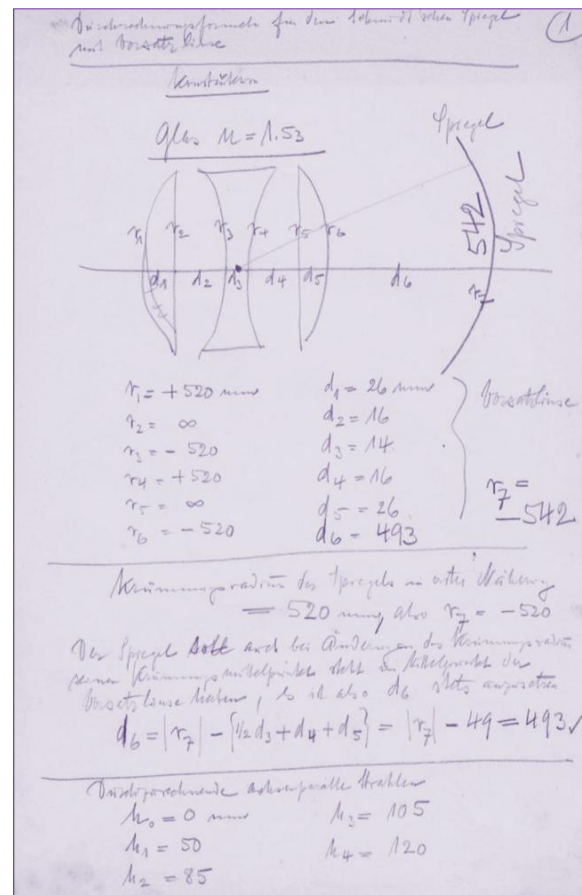 Durchrechnungsformeln für den Schmidt'schen Spiegel
mit Vorsatzlinse
1
Konstruktion
Glas n = 1.53
Spiegel
542
Spiegel
r1 r2 r3 r4 r5 r6 r7
d1 d2 d3 d4 d5 d6
r1 = +520 mm d1 = 26 mm
r2 = ∞ d2 = 16
r3 = - 520 d3 = 14
r4 = +520 d4 = 16
r5 = ∞ d5 = 26
r6 = - 520 d6 = 493
Vorsatzlinse
r7 =
- 542
Krümmungsradius des Spiegels in erster Näherung
= 520 mm, also r7 = -520
Der Spiegel soll auch bei Änderungen des Krümmungsradius
seinen Krümmungsmittelpunkt stets im Mittelpunkt der
Vorsatzlinse haben, es ist also d6 stets anzusetzen
d6 = |r7| - {1/2 d3 + d4 + d5} = |r7| - 49 = 493 ✓
Durchzurechnende achsenparallele Strahlen
h0 = 0 mm h3 = 105
h1 = 50 h4 = 120
h2 = 85